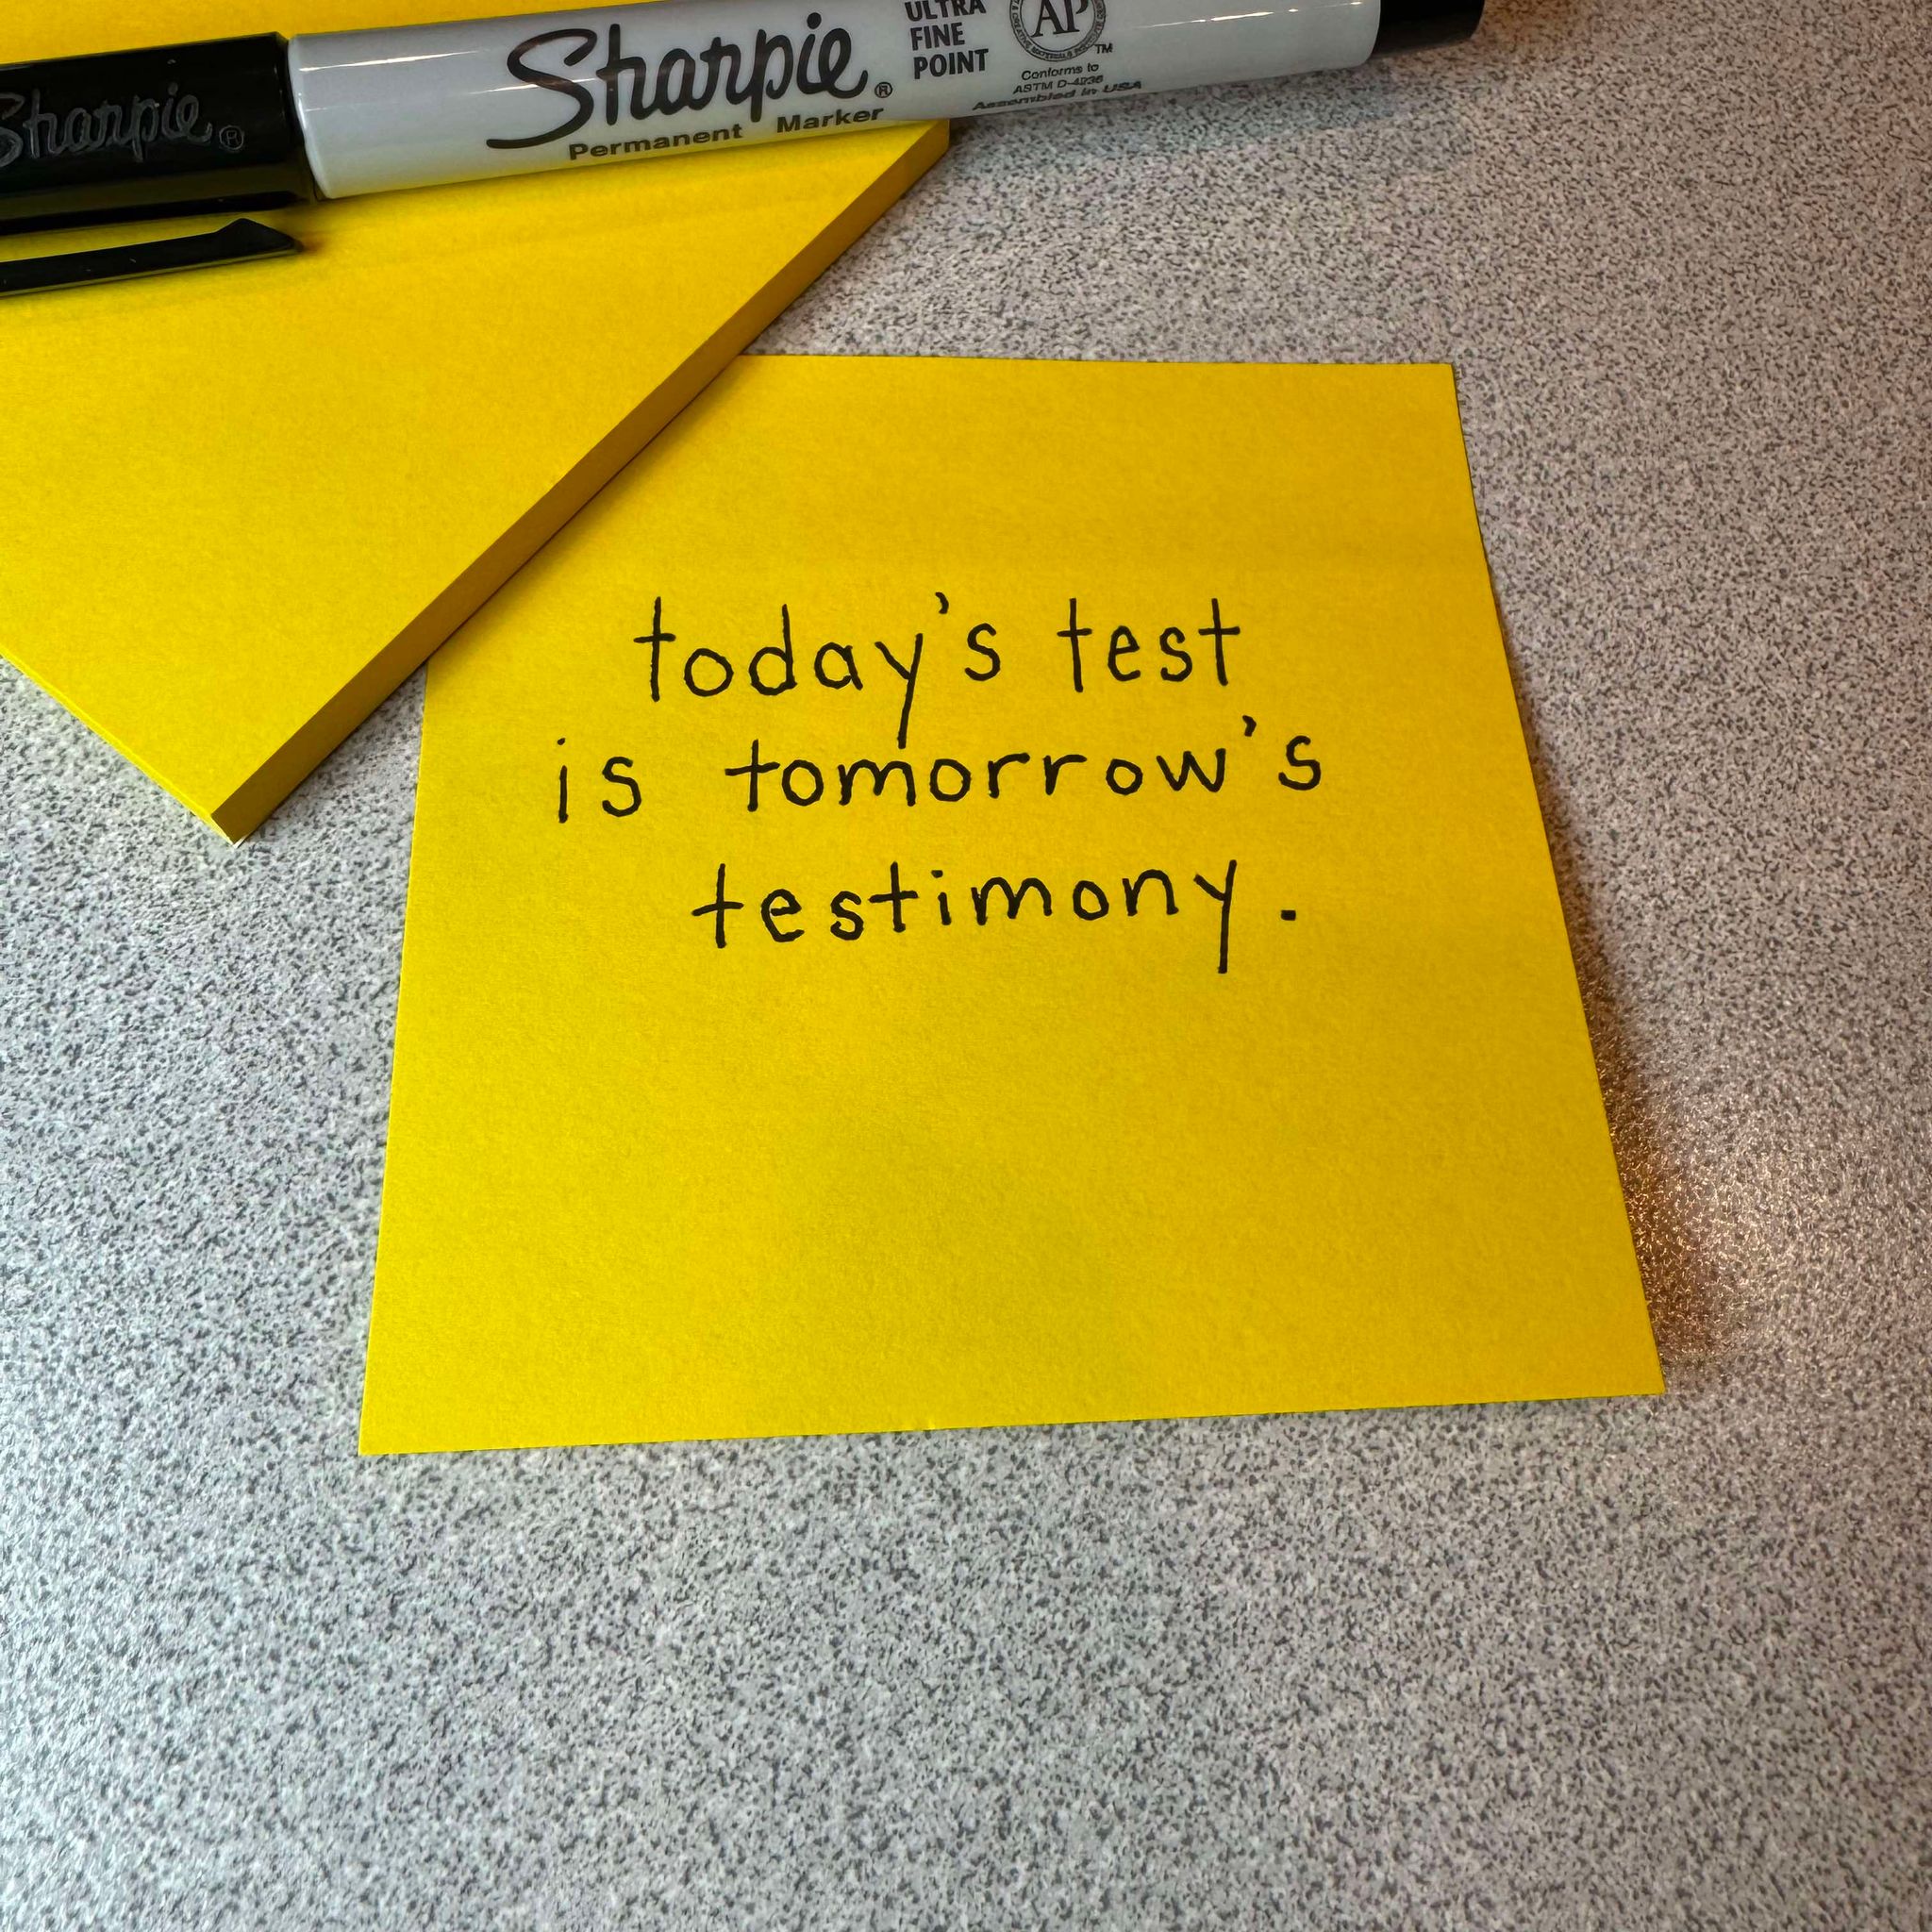 Sharpie®
Sharpie®
Permanent Marker
ULTRA
FINE
POINT
AP
TM
Conforms to
ASTM D-4236
Assembled in USA
today's test
is tomorrow's
testimony.